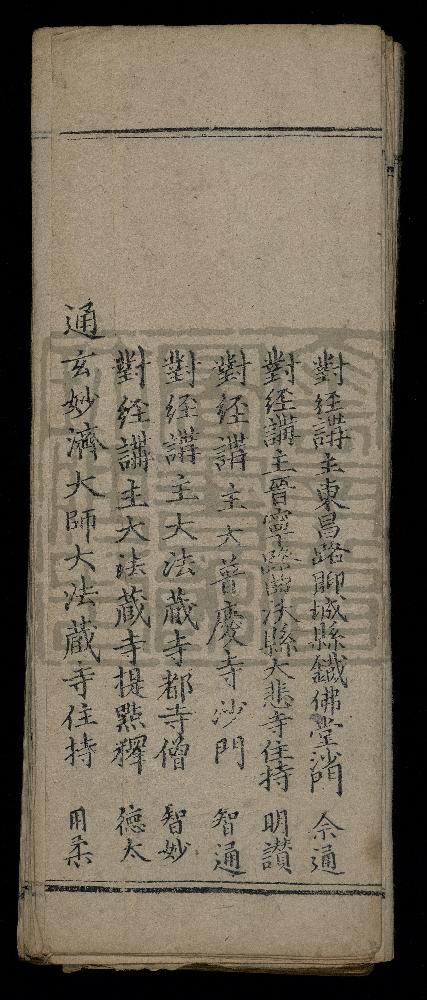 對経講主東昌路聊城縣鐵佛堂沙門 尒通
對経講主晉寧路曲沃縣大悲寺住持 明讃
對経講主大普慶寺沙門 智通
對経講主大法蔵寺都寺僧 智妙
對経講主大法蔵寺提㸃釋 德太
通玄妙濟大師大法蔵寺住持 用柔